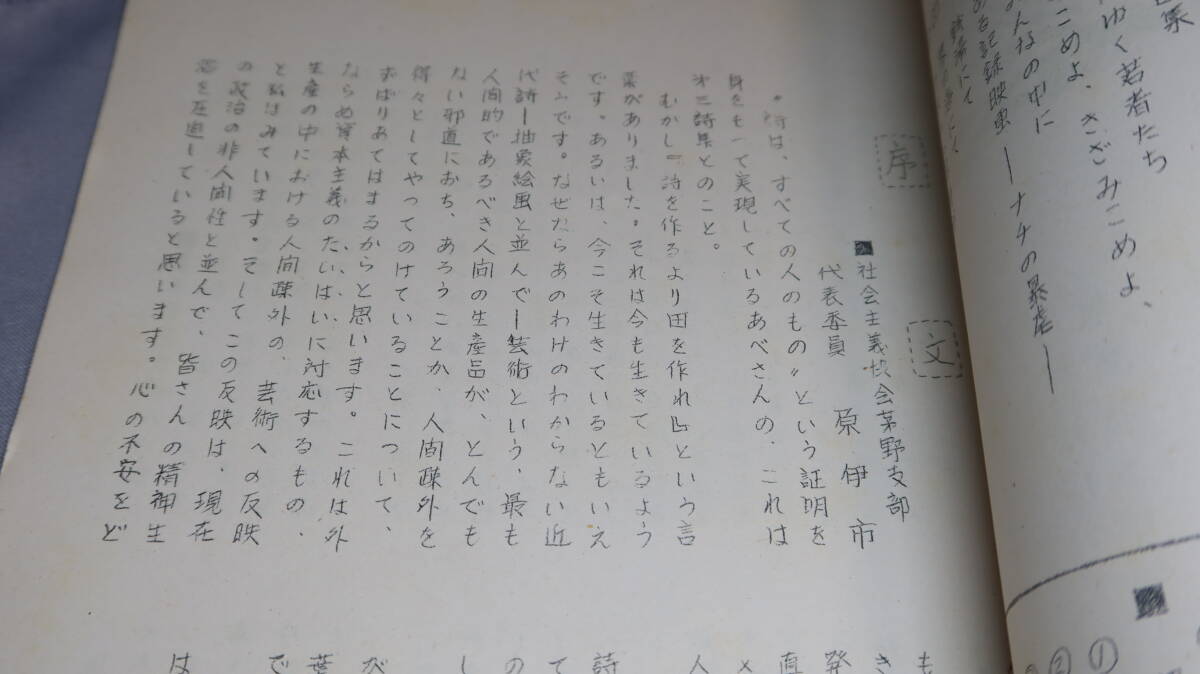 集
ゆく若者たち
こめよ、きざみこめよ、
んなの中に
る記録映画ーナチの暴虐ー
序文
社会主義協会茅野支部
代表委員 原伊市
〝詩は、すべての人のもの〟という証明を
身をもって実現しているあべさんの、これは
オ二詩集とのこと。
むかし『詩を作るより田を作れ』という言
葉がありました。それは今も生きているよう
です。あるいは、今こそ生きているともいえ
そうです。なぜならあのわけのわからない近
代詩ー抽象絵画と並んでー芸術という、最も
人間的であるべき人間の生産品が、とんでも
ない邪道におち、あろうことか、人間疎外を
得々としてやってのけていることについて、
ずばりあてはまるからと思います。これは外
ならぬ資本主義のたいはいに対応するもの・
生産の中における人間疎外の、芸術への反映
と私はみています。そしてこの反映は、現在
の政治の非人間性と並んで、皆さんの精神生
活を圧迫していると思います。心の不安をど
も
き
発
直
メ
人
詩
て
の
し
が
葉
で
は
①
②